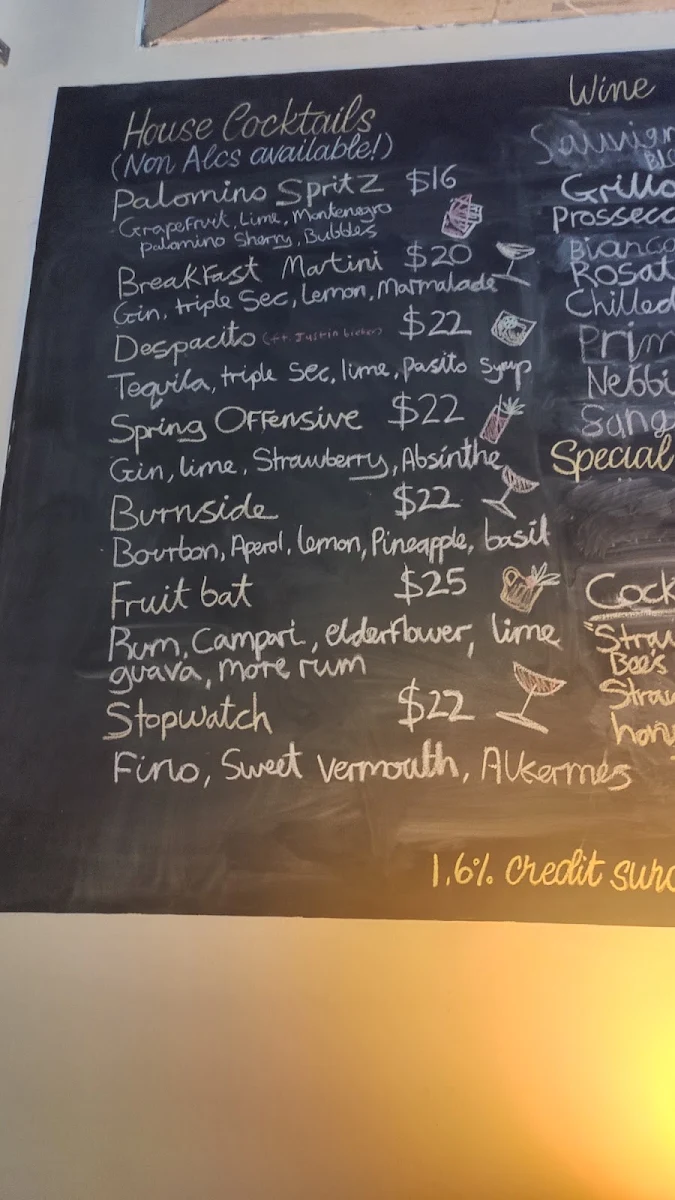 House Cocktails
(Non Alcs available!)
Palomino Spritz $16
Grapefruit, Lime, Montenegro
palomino Sherry, Bubbles
Breakfast Martini $20
Gin, triple Sec, Lemon, Marmalade
Despacito (ft. Justin bieber) $22
Tequila, triple Sec, lime, pasito Syrup
Spring Offensive $22
Gin, lime, Strawberry, Absinthe
Burnside $22
Bourbon, Aperol, lemon, Pineapple, basil
Fruit bat $25
Rum, Campari, elderflower, lime
guava, more rum
Stopwatch $22
Fino, Sweet vermouth, Alkermes
Wine
Grillo
Prossecc
Bianco
Rosat
Chilled
Prim
Nebbi
Sang
Special
Cock
"Straw
Bee's
Straw
hon
1.6% credit surc